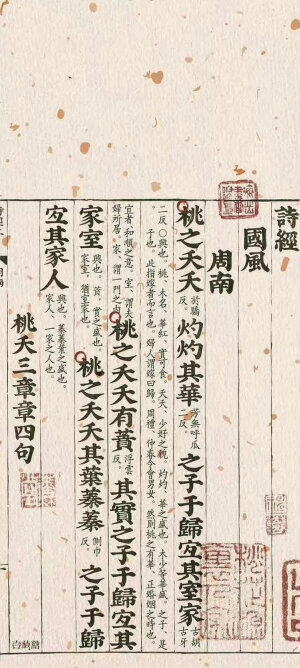 詩經
國風
周南
桃之夭夭於驕反。灼灼其華芳無呼瓜二反。之子于歸宐其室家古胡古牙
二反。○興也。桃、木名、華紅、實可食。夭夭、少好之貌。灼灼、華之盛也。木少華盛。之子、是
子也。此指嫁者而言也。婦人謂嫁曰歸。周禮、仲春令會男女。然則桃之有華、正婚姻之時也。
宜者、和順之意。室、謂夫婦所居。家、謂一門之內。桃之夭夭有蕡浮雲反。其實之子于歸宐其
家室興也。蕡、實之盛也。家室、猶室家也。桃之夭夭其葉蓁蓁側巾反。之子于歸
宐其家人興也。蓁蓁葉之盛也。家人、一家之人也。
桃夭三章章四句